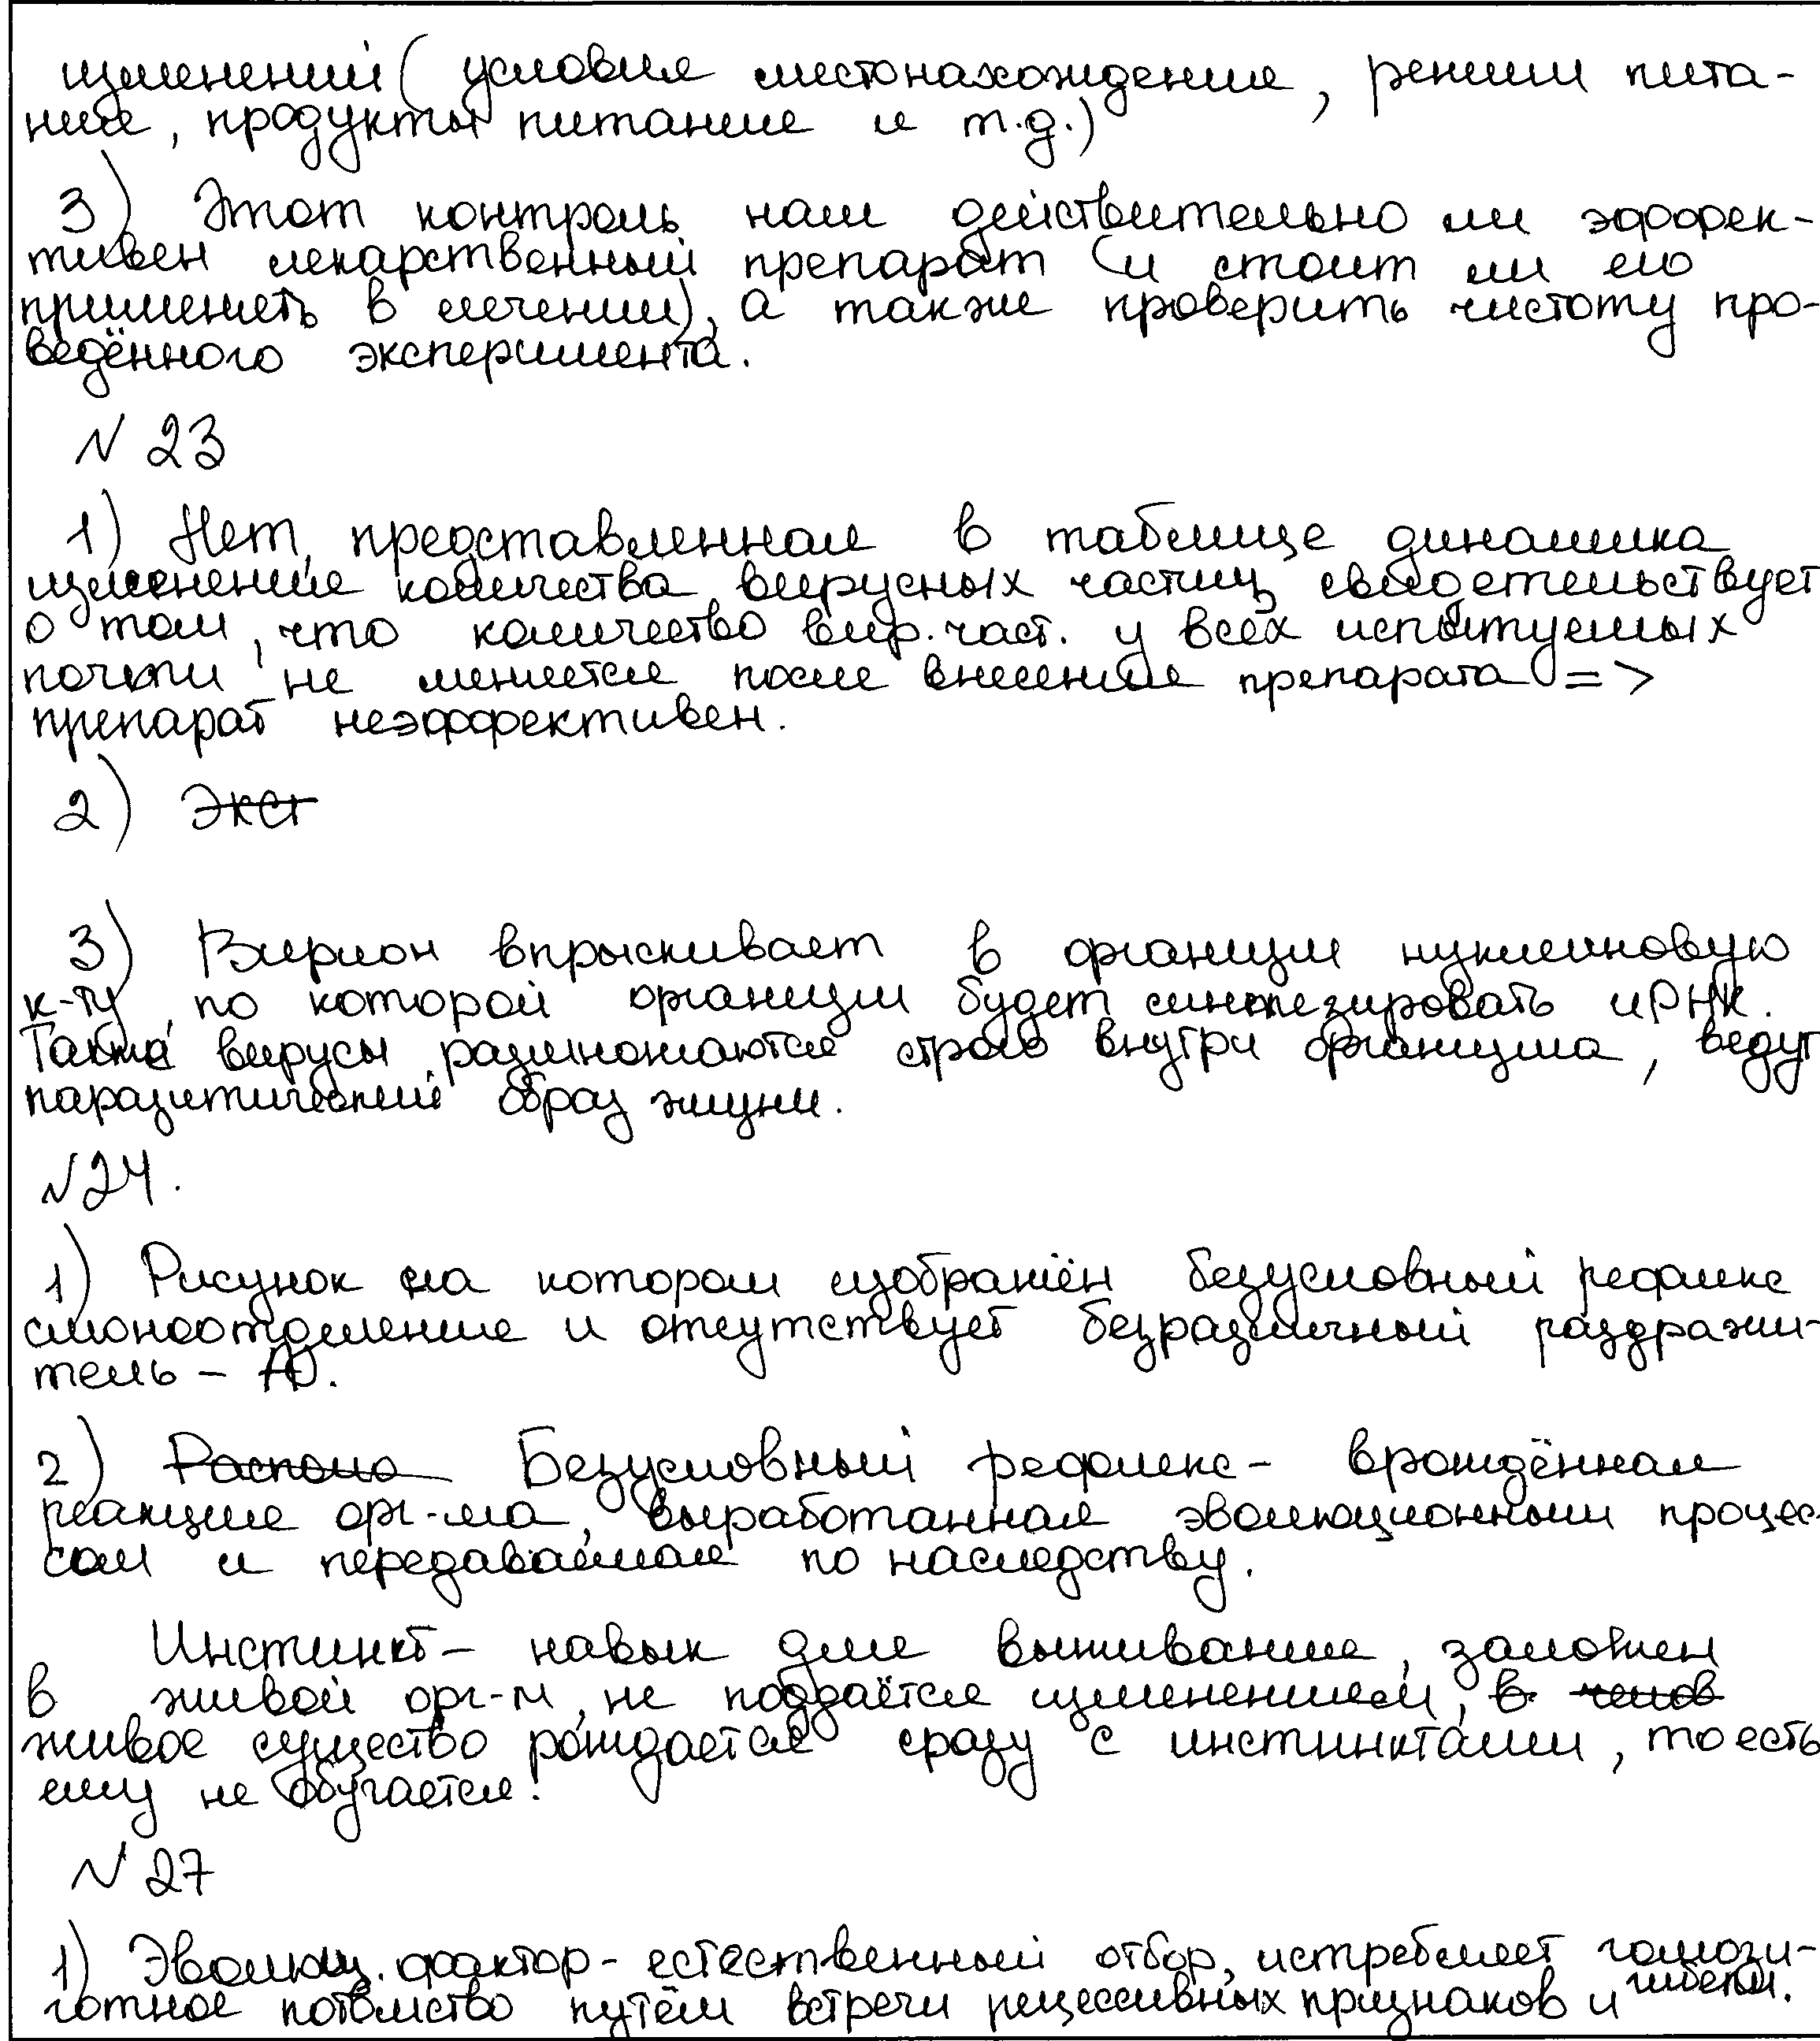 изменений (условия местонахождения, режим пита-
ния, продукты питания и т.д.)
3) Этот контроль нам действительно ли эффек-
тивен лекарственный препарат (и стоит ли его
применять в лечении), а также проверить чистоту про-
ведённого эксперимента.
№ 23
1) Нет, представленная в таблице динамика
изменения количества вирусных частиц свидетельствует
о том, что количество вир. част. у всех испытуемых
почти не меняется после внесения препарата =>
препарат неэффективен.
2) Экст
3) Вирион впрыскивает в организм нуклеиновую
к-ту, по которой организм будет синтезировать иРНК.
Также вирусы размножаются строго внутри организма, ведут
паразитический образ жизни.
№24.
1) Рисунок на котором изображён безусловный рефлекс
слюноотделения и отсутствует безразличный раздражи-
тель – А.
2) Располо Безусловный рефлекс – врождённая
реакция орг-ма, выработанная эволюционным процес-
сом и передаваемая по наследству.
Инстинкт – навык для выживания, заложен
в живой орг-м, не поддаётся изменениям, в челов
живое существо рождается сразу с инстинктами, то есть
ему не обучается.
№ 27
1) Эволюц. фактор – естественный отбор, истребляет гомози-
готное потомство путём встречи рецессивных признаков и гибели.